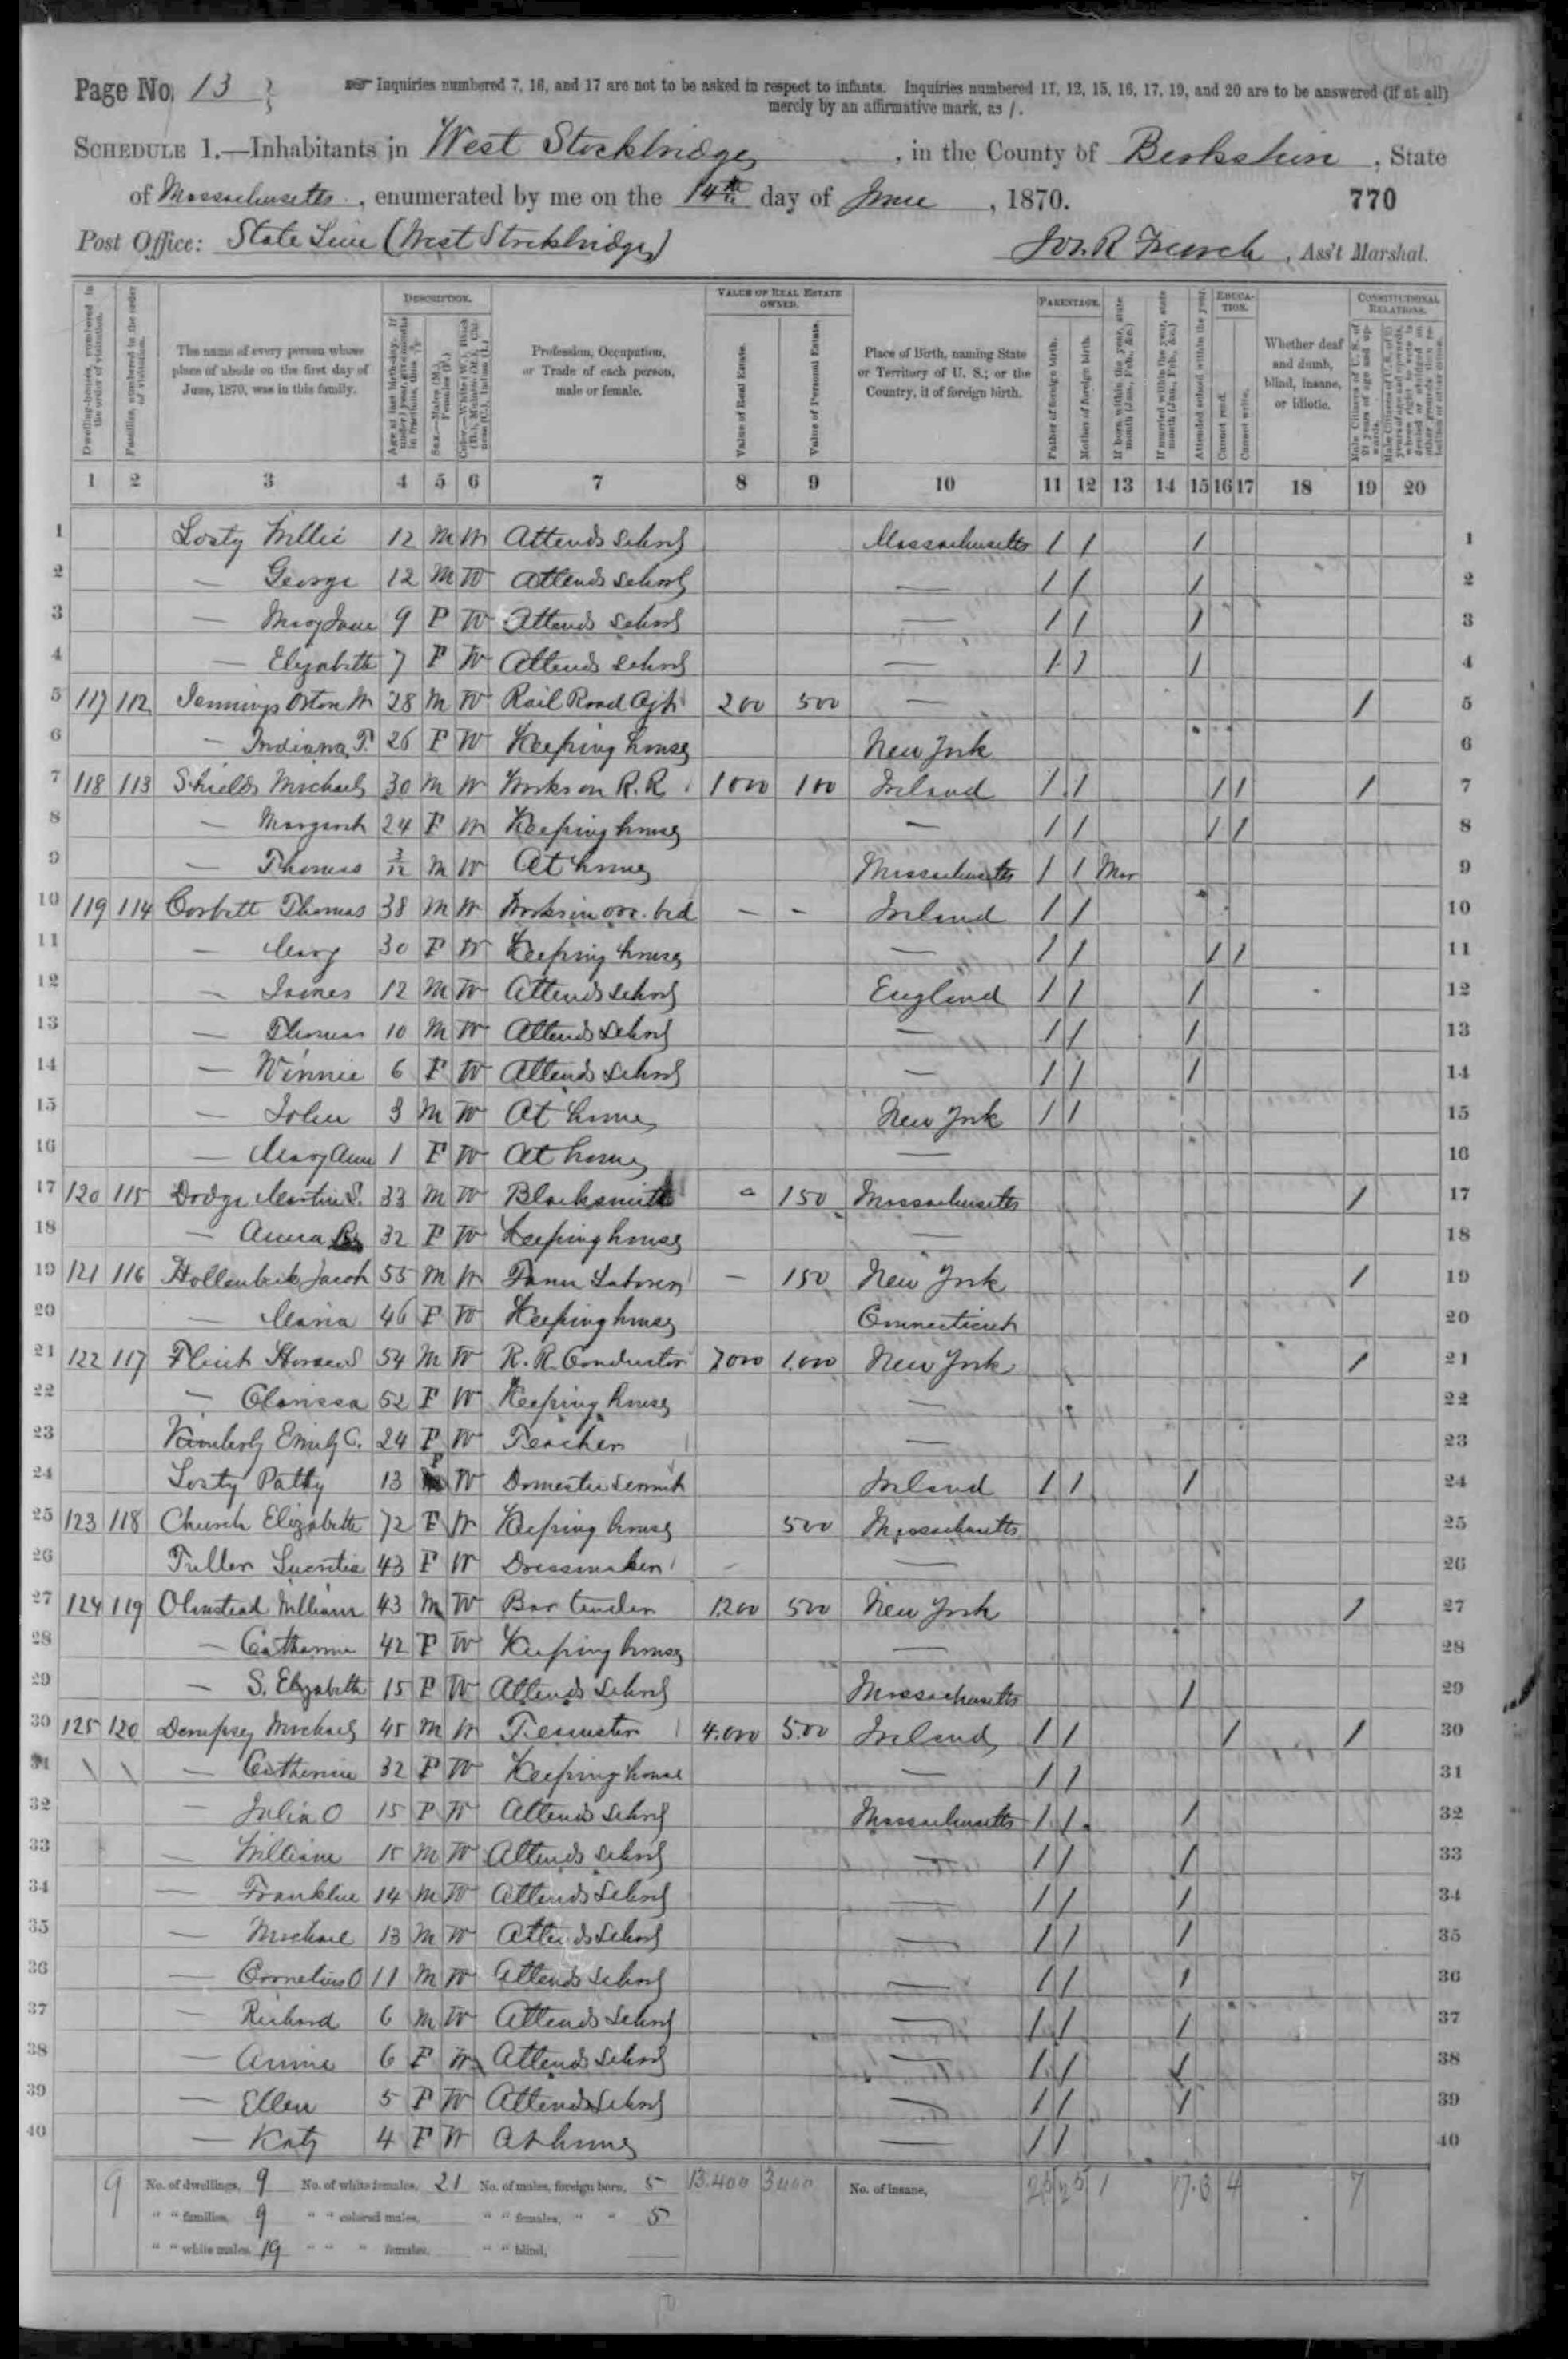 Page No. 13
Inquiries numbered 7, 16, and 17 are not to be asked in respect to infants. Inquiries numbered 11, 12, 15, 16, 17, 19, and 20 are to be answered (if at all)
merely by an affirmative mark, as /.
SCHEDULE 1.—Inhabitants in West Stockbridge, in the County of Berkshire, State
of Massachusetts, enumerated by me on the 14th day of June, 1870. 770
Post Office: State Line (West Stockbridge) R French, Ass't Marshal.
DESCRIPTION. VALUE OF REAL ESTATE OWNED. PARENTAGE. EDUCATION. CONSTITUTIONAL RELATIONS.
Dwelling-houses, numbered in the order of visitation.
Families, numbered in the order of visitation.
The name of every person whose place of abode on the first day of June, 1870, was in this family.
Age at last birth-day. If under 1 year, give months in fractions, thus 3/12
Sex.—Males (M.), Females (F.)
Color.—White (W.), Black (B.), Mulatto (M.), Chinese (C.), Indian (I.)
Profession, Occupation, or Trade of each person, male or female.
Value of Real Estate.
Value of Personal Estate.
Place of Birth, naming State or Territory of U. S.; or the Country, if of foreign birth.
Father of foreign birth.
Mother of foreign birth.
If born within the year, state month (Jan., Feb., &c.)
If married within the year, state month (Jan., Feb., &c.)
Attended school within the year.
Cannot read.
Cannot write.
Whether deaf and dumb, blind, insane, or idiotic.
Male Citizens of U. S. of 21 years of age and upwards.
Male Citizens of U. S. of 21 years of age and upwards, whose right to vote is denied or abridged on other grounds than rebellion or other crime.
1 2 3 4 5 6 7 8 9 10 11 12 13 14 15 16 17 18 19 20
1 Losty Willie 12 M W Attends School Massachusetts / / / 1
2 — George 12 M W Attends School — / / / 2
3 — Mary Jane 9 F W Attends School — / / / 3
4 — Elizabeth 7 F W Attends School — / / / 4
5 117 112 Jennings Orton M 28 M W Rail Road Agt 200 500 — / 5
6 — Indiana T. 26 F W Keeping house New York 6
7 118 113 Shields Michael 30 M W Works on R.R 1000 100 Ireland / / / / / 7
8 — Margaret 24 F W Keeping house — / / / / 8
9 — Thomas 3/12 M W At home Massachusetts / / Mar 9
10 119 114 Corbett Thomas 38 M W Works in ore bed — — Ireland / / 10
11 — Mary 30 F W Keeping house — / / / / 11
12 — James 12 M W Attends School England / / / 12
13 — Thomas 10 M W Attends School — / / / 13
14 — Winnie 6 F W Attends School — / / / 14
15 — John 3 M W At home New York / / 15
16 — Mary Ann 1 F W At home — 16
17 120 115 Dodge Martin S. 33 M W Blacksmith — 150 Massachusetts / 17
18 — Anna 32 F W Keeping house — 18
19 121 116 Hollenbeck Jacob 55 M W Farm Laborer — 150 New York / 19
20 — Maria 46 F W Keeping house Connecticut 20
21 122 117 Flint Horace S 54 M W R. R. Conductor 7000 1.000 New York / 21
22 — Clarissa 52 F W Keeping house — 22
23 Kimberly Emily C. 24 F W Teacher — 23
24 Losty Patty 13 F W Domestic Servant Ireland / / / 24
25 123 118 Church Elizabeth 72 F W Keeping house 500 Massachusetts 25
26 Fuller Lucretia 43 F W Dressmaker — — 26
27 124 119 Olmstead William 43 M W Bar tender 1.200 500 New York / 27
28 — Catharine 42 F W Keeping house — 28
29 — S. Elizabeth 15 F W Attends School Massachusetts / 29
30 125 120 Dempsey Michael 45 M W Teamster 4.000 500 Ireland / / / / 30
31 \ \ — Catherine 32 F W Keeping house — / / 31
32 — Julia O 15 F W Attends School Massachusetts / / / 32
33 — William 15 M W Attends School — / / / 33
34 — Franklin 14 M W Attends School — / / / 34
35 — Michael 13 M W Attends School — / / / 35
36 — Cornelius O 11 M W Attends School — / / / 36
37 — Richard 6 M W Attends School — / / / 37
38 — Annie 6 F W Attends School — / / / 38
39 — Ellen 5 F W Attends School — / / / 39
40 — Katy 4 F W At home — / / 40
9 No. of dwellings, 9 No. of white females, 21 No. of males, foreign born, 5 13.400 3400 No. of insane, 25 25 1 17 3 4 7
" " families, 9 " " colored males, " " females, " " 5
" " white males, 19 " " " females, " " blind,